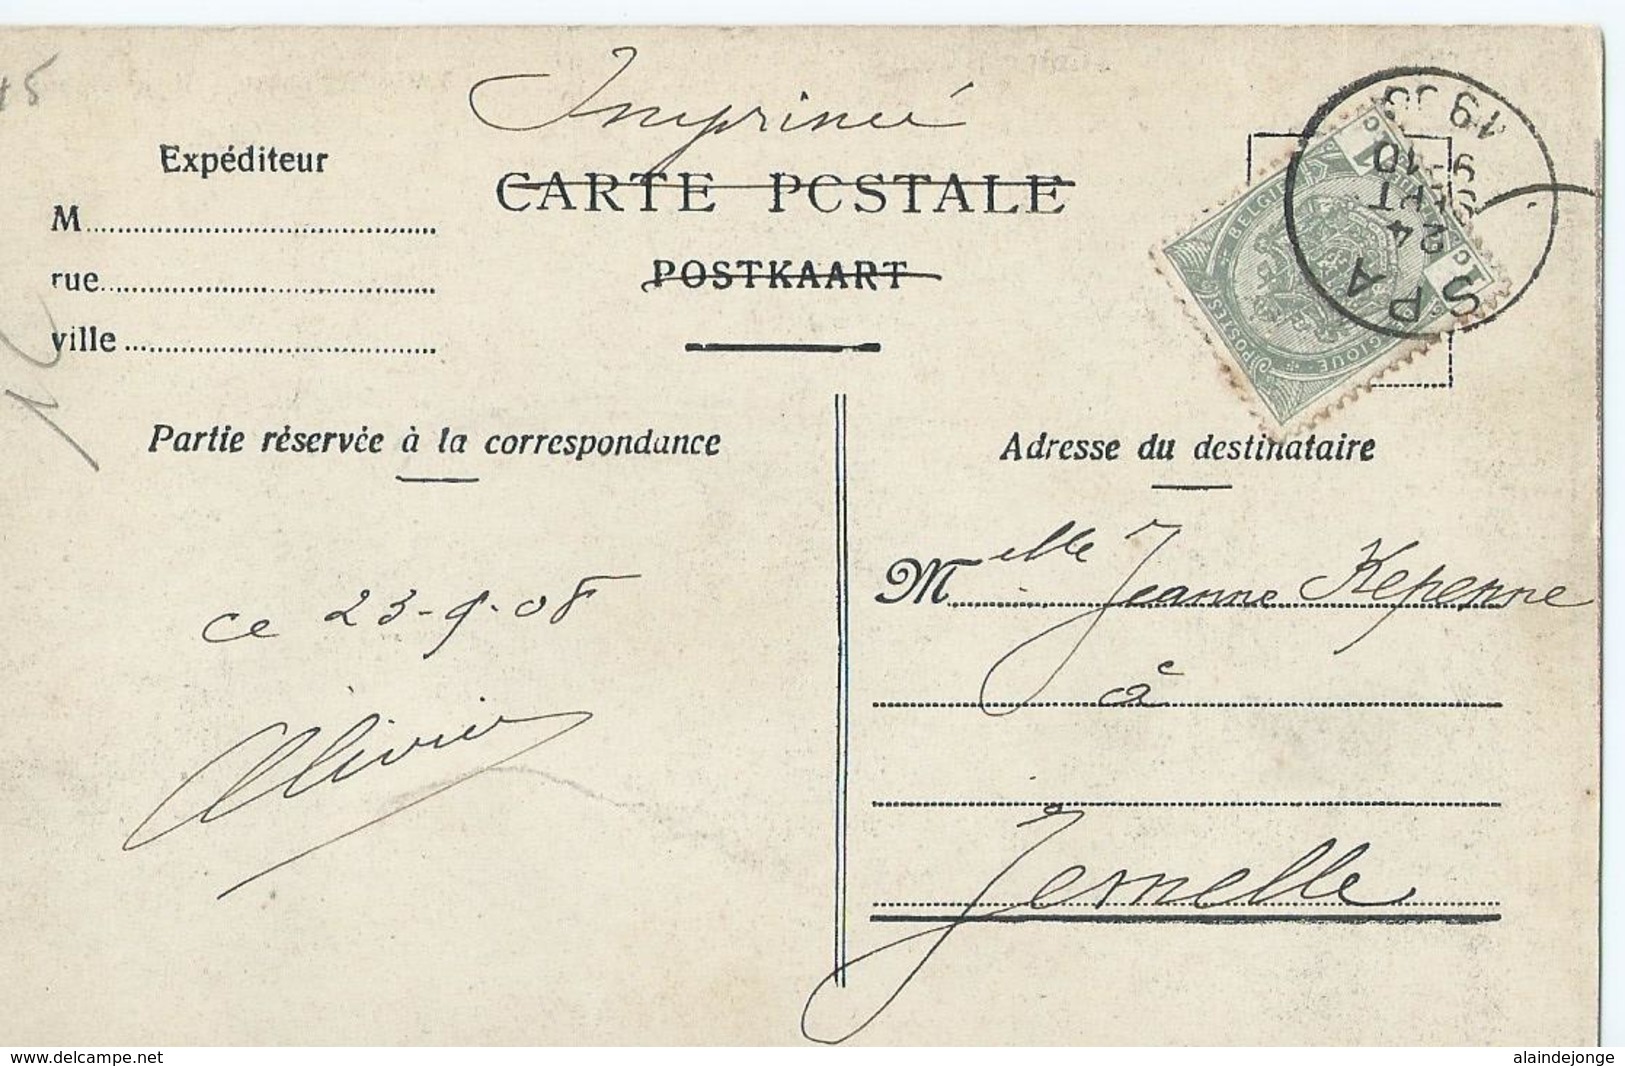 45
Imprimé
Expéditeur
M
rue
ville
CARTE POSTALE
POSTKAART
SPA
24
SEPT
9-10
1908
BELGIË
POSTES
BELGIQUE
1c
1c
1
Partie réservée à la correspondance
Adresse du destinataire
ce 23-9-08
Olivier
Melle Jeanne Kepenne
à
Jemelle
www.delcampe.net
alaindejonge